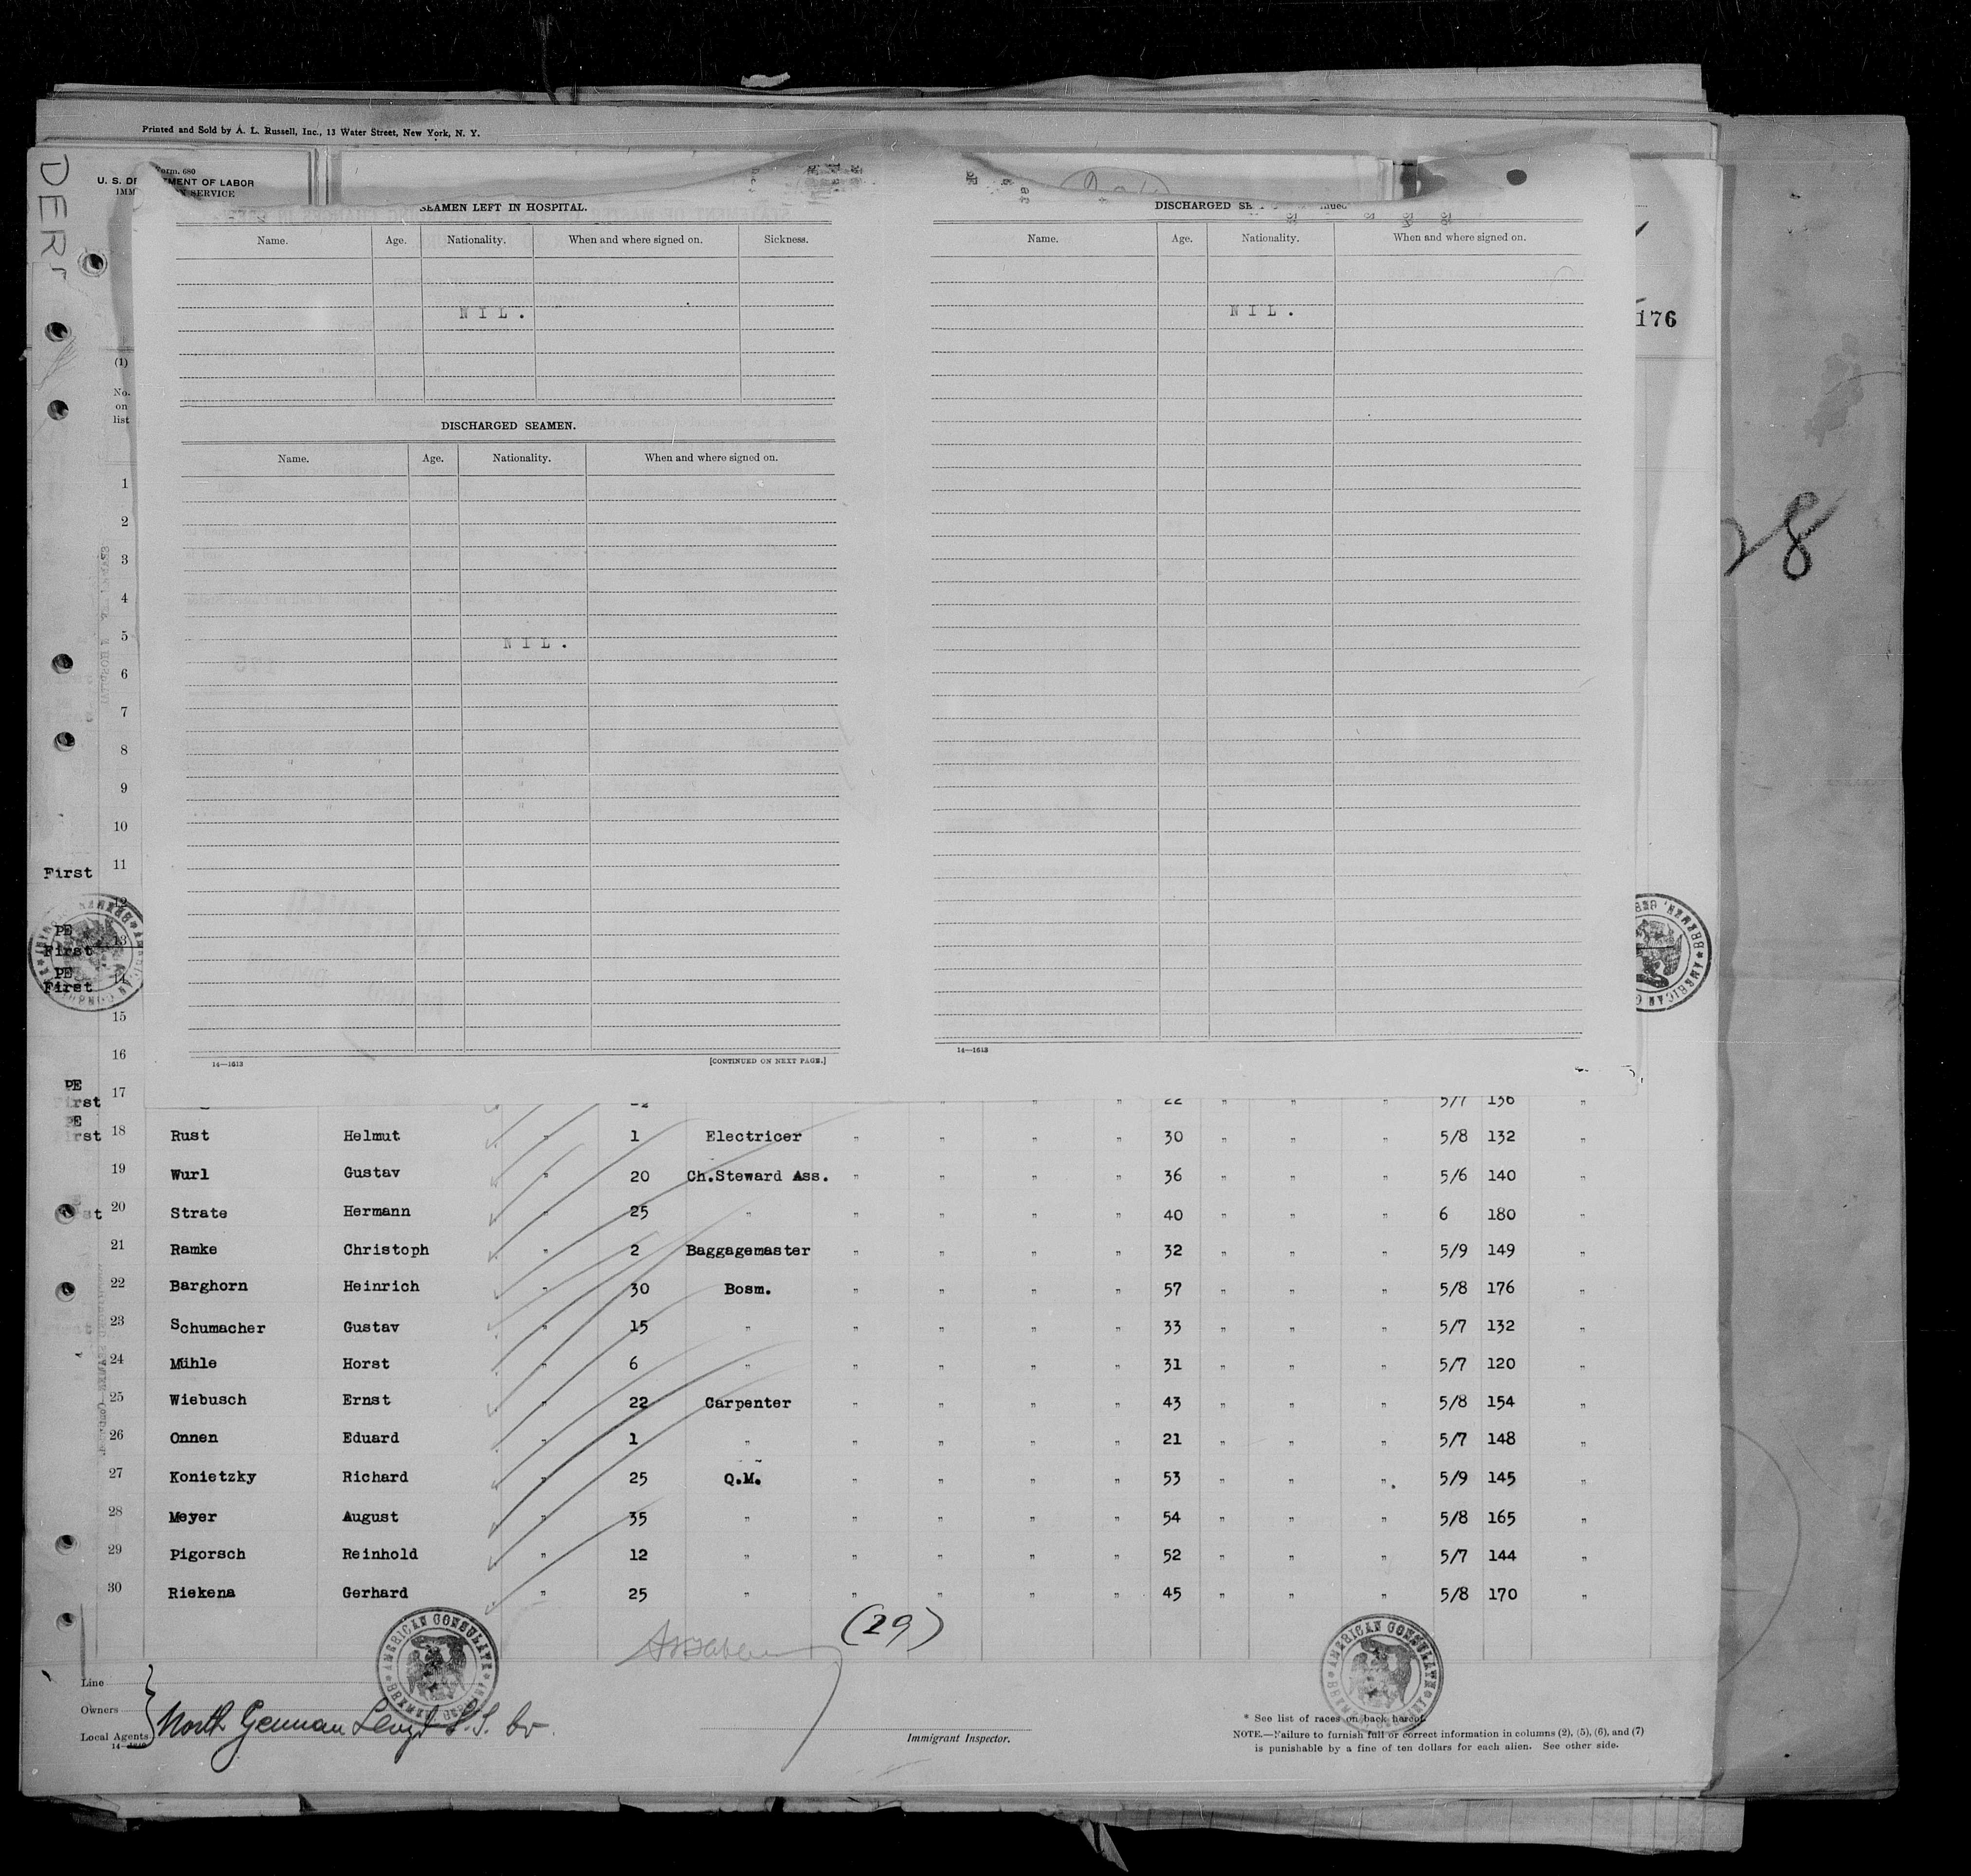 Printed and Sold by A. L. Russell, Inc., 13 Water Street, New York, N. Y.
Form. 680
U. S. DEPARTMENT OF LABOR
SERVICE
SEAMEN LEFT IN HOSPITAL.
Name. Age. Nationality. When and where signed on. Sickness.
NIL.
DISCHARGED SEAMEN.
Name. Age. Nationality. When and where signed on.
NIL.
14—1613 [CONTINUED ON NEXT PAGE.]
DISCHARGED
Name. Age. Nationality. When and where signed on.
NIL.
14—1613
176
28
(1)
No. on list
1
2
3
4
5
6
7
8
9
10
First 11
12
PE First 13
PE First 14
15
16
PE First 17 22 " " " 5/7 136 "
PE First 18 Rust Helmut " 1 Electricer " " " " 30 " " " 5/8 132 "
19 Wurl Gustav " 20 Ch.Steward Ass. " " " " 36 " " " 5/6 140 "
20 Strate Hermann " 25 " " " " " 40 " " " 6 180 "
21 Ramke Christoph " 2 Baggagemaster " " " " 32 " " " 5/9 149 "
22 Barghorn Heinrich " 30 Bosm. " " " " 57 " " " 5/8 176 "
23 Schumacher Gustav " 15 " " " " " 33 " " " 5/7 132 "
24 Mühle Horst " 6 " " " " " 31 " " " 5/7 120 "
25 Wiebusch Ernst " 22 Carpenter " " " " 43 " " " 5/8 154 "
26 Onnen Eduard " 1 " " " " " 21 " " " 5/7 148 "
27 Konietzky Richard " 25 Q.M. " " " " 53 " " " 5/9 145 "
28 Meyer August " 35 " " " " " 54 " " " 5/8 165 "
29 Pigorsch Reinhold " 12 " " " " " 52 " " " 5/7 144 "
30 Riekena Gerhard " 25 " " " " " 45 " " " 5/8 170 "
(29)
AMERICAN CONSULATE
AMERICAN CONSULATE
Line
Owners
Local Agents
North German Lloyd S.S. Co.
Immigrant Inspector.
* See list of races on back hereof.
NOTE.—Failure to furnish full or correct information in columns (2), (5), (6), and (7)
is punishable by a fine of ten dollars for each alien. See other side.